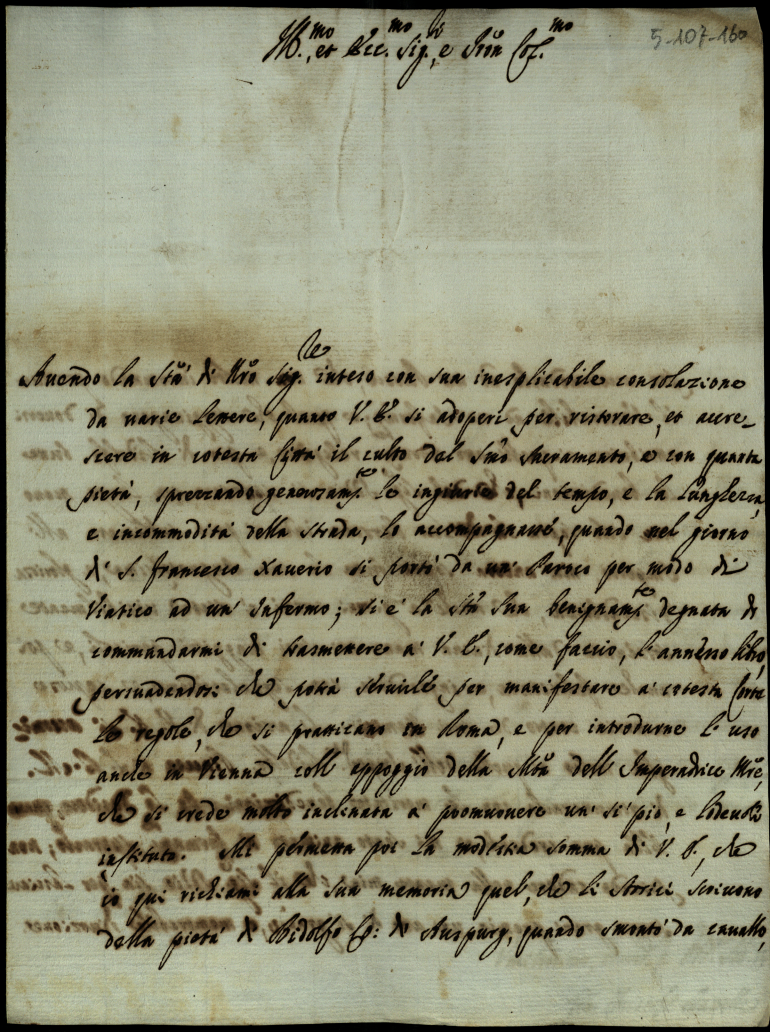 Ill.mo, et Ecc.mo Sig.r, e Pròn Col.mo
5-107-160
Avendo la Stà di Nrò Sig.re inteso con sua inesplicabile consolazione
da varie lettere, quanto V. E. si adoperi per ristorare, et accre-
scere in cotesta Città il culto del Smo Sacramento, e con quanta
pietà, sprezzando generosam.te le ingiurie del tempo, e la lunghezza,
e incommodità della strada, lo accompagnasse, quando nel giorno
di S. Francesco Xaverio si portò da un Paroco per modo di
Viatico ad un Infermo; si è la Stà Sua benignam.te degnata di
commandarmi di trasmettere à V. E., come faccio, l'annesso libro,
persuadendosi che potrà servirle per manifestare à cotesta Corte
le regole, che si pratticano in Roma, e per introdurne l'uso
anche in Vienna coll'appoggio della Mtà dell'Imperadrice Mrè,
che si crede molto inclinata à promuovere un sì pio, e lodevole
instituto. Mi permetta poi la modestia somma di V. E., che
io qui richiami alla sua memoria quel, che li Storici scrivono
della pietà di Ridolfo Co: di Auspurg, quando smontò da cavallo,